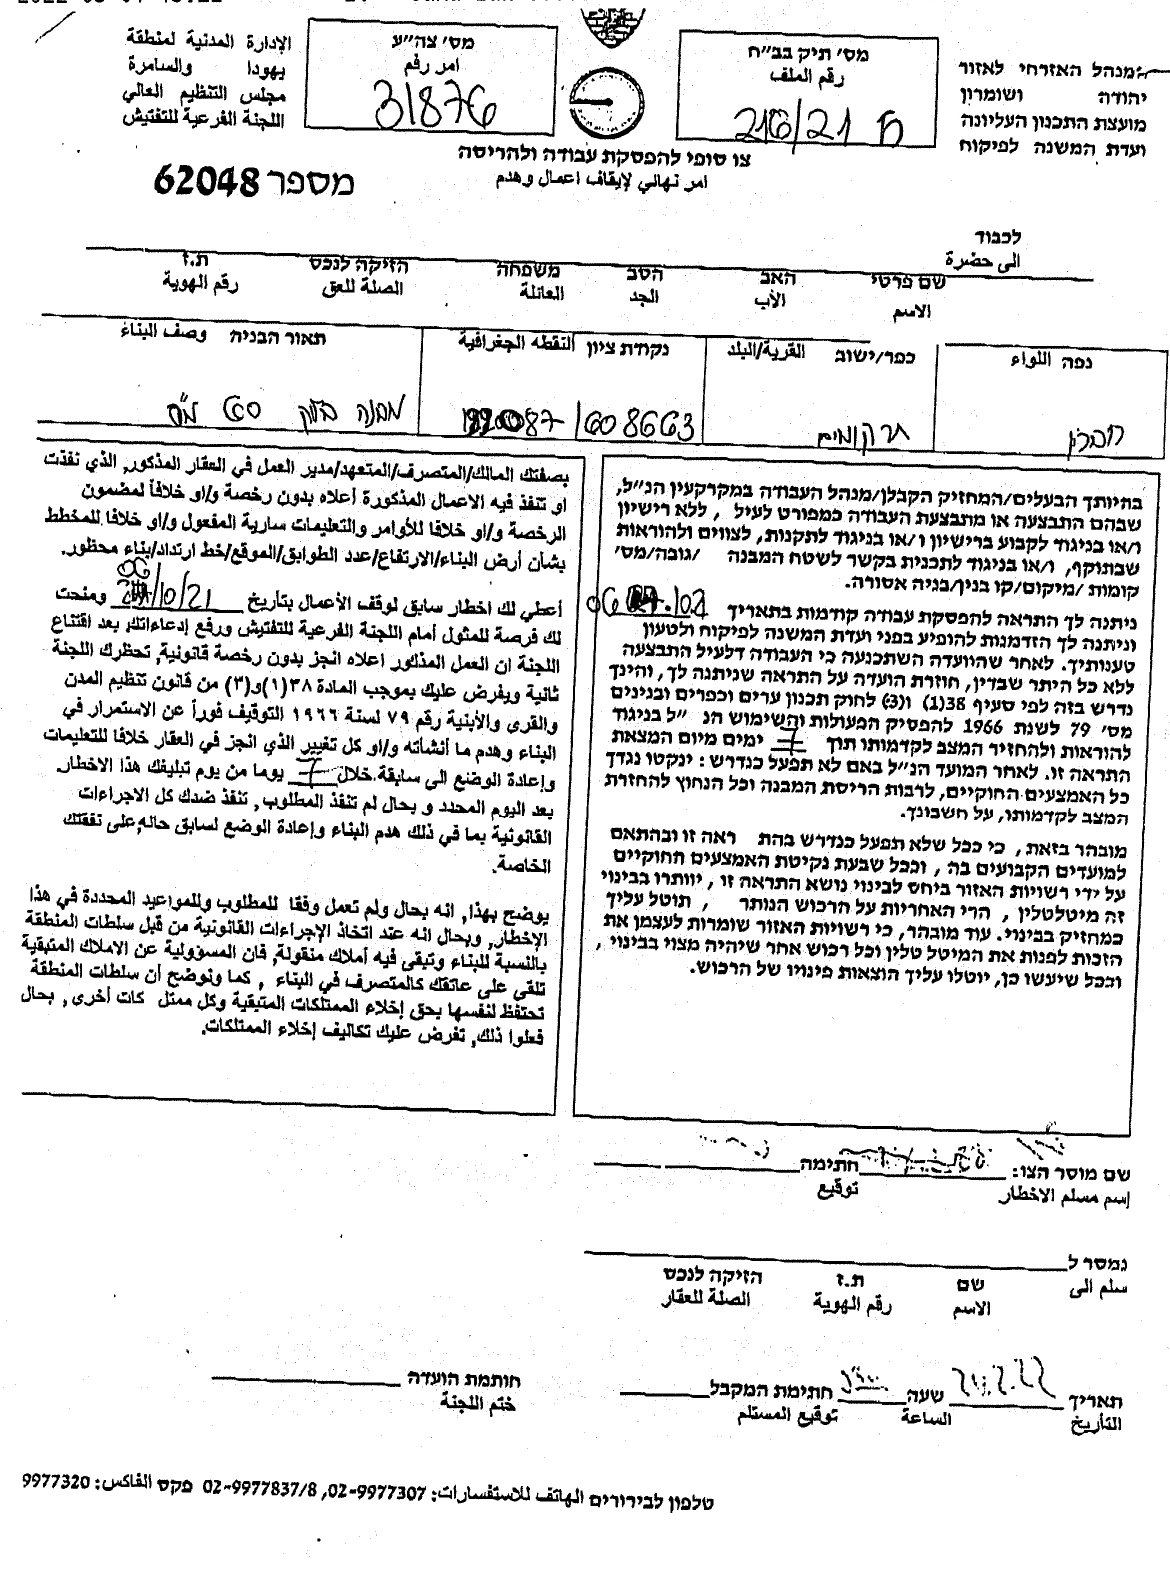 מנהל האזרחי לאזור
יהודה ושומרון
מועצת התכנון העליונה
ועדת המשנה לפיקוח
מס׳ תיק בב״ח
رقم الملف
216/21 ה
מס׳ צה״ע
امر رقم
31876
الإدارة المدنية لمنطقة
يهودا والسامرة
مجلس التنظيم العالي
اللجنة الفرعية للتفتيش
צו סופי להפסקת עבודה ולהריסה
امر نهائي لإيقاف اعمال وهدم
מספר 62048
לכבוד
الى حضرة
שם פרטי האב הסב משפחה הזיקה לנכס ת.ז
الاسم الأب الجد العائلة الصلة للعق رقم الهوية
נפה اللواء
כפר/ישוב القرية/البلد
נקודת ציון النقطه الجغرافية
תאור הבניה وصف البناء
חברון
תרקומיא
608663
מבנה בלוק 60 מ״ר
בהיותך הבעלים/המחזיק הקבלן/מנהל העבודה במקרקעין הנ״ל,
שבהם התבצעה או מתבצעת העבודה כמפורט לעיל , ללא רישיון
ו/או בניגוד לקבוע ברישיון ו/או בניגוד לתקנות, לצווים ולהוראות
שבתוקף, ו/או בניגוד לתכנית בקשר לשטח המבנה /גובה/מס׳
קומות /מיקום/קו בנין/בניה אסורה.
ניתנה לך התראה להפסקת עבודה קודמות בתאריך
וניתנה לך הזדמנות להופיע בפני ועדת המשנה לפיקוח ולטעון
טענותיך. לאחר שהוועדה השתכנעה כי העבודה דלעיל התבצעה
ללא כל היתר שבדין, חוזרת הועדה על התראה שניתנה לך, והינך
נדרש בזה לפי סעיף 38(1) ו(3) לחוק תכנון ערים וכפרים ובנינים
מס׳ 79 לשנת 1966 להפסיק הפעולות והשימוש הנ ״ל בניגוד
להוראות ולהחזיר המצב לקדמותו תוך 7 ימים מיום המצאת
התראה זו. לאחר המועד הנ״ל באם לא תפעל כנדרש : ינקטו נגדך
כל האמצעים החוקיים, לרבות הריסת המבנה וכל הנחוץ להחזרת
המצב לקדמותו, על חשבונך.
מובהר בזאת , כי ככל שלא תפעל כנדרש בהת ראה זו ובהתאם
למועדים הקבועים בה , וככל שבעת נקיטת האמצעים החוקיים
על ידי רשויות האזור ביחס לבינוי נושא התראה זו , יוותרו בבינוי
זה מיטלטלין , הרי האחריות על הרכוש הנותר , תוטל עליך
כמחזיק בבינוי. עוד מובהר, כי רשויות האזור שומרות לעצמן את
הזכות לפנות את המיטל טלין וכל רכוש אחר שיהיה מצוי בבינוי ,
וככל שיעשו כן, יוטלו עליך הוצאות פינויו של הרכוש.
بصفتك المالك/المتصرف/المتعهد/مدير العمل في العقار المذكور, الذي نفذت
او تنفذ فيه الاعمال المذكورة أعلاه بدون رخصة و/او خلافاً لمضمون
الرخصة و/او خلافا للأوامر والتعليمات سارية المفعول و/او خلافا للمخطط
بشأن أرض البناء/الارتفاع/عدد الطوابق/الموقع/خط ارتداد/بناء محظور.
06
أعطي لك اخطار سابق لوقف الأعمال بتاريخ /10/21 ومنحت
لك فرصة للمثول أمام اللجنة الفرعية للتفتيش ورفع إدعاءاتك, بعد اقتناع
اللجنة ان العمل المذكور اعلاه انجز بدون رخصة قانونية, تحظرك اللجنة
ثانية ويفرض عليك بموجب المادة ٣٨(١)و(٣) من قانون تنظيم المدن
والقرى والأبنية رقم ٧٩ لسنة ١٩٦٦ التوقيف فوراً عن الاستمرار في
البناء وهدم ما أنشأته و/او كل تغيير الذي انجز في العقار خلافا للتعليمات
وإعادة الوضع الى سابقة خلال 7 يوما من يوم تبليغك هذا الاخطار.
بعد اليوم المحدد و بحال لم تنفذ المطلوب, تنفذ ضدك كل الاجراءات
القانونية بما في ذلك هدم البناء وإعادة الوضع لسابق حاله, على نفقتك
الخاصة.
يوضح بهذا, انه بحال ولم تعمل وفقا للمطلوب وللمواعيد المحددة في هذا
الإخطار, وبحال انه عند اتخاذ الإجراءات القانونية من قبل سلطات المنطقة
بالنسبة للبناء وتبقى فيه أملاك منقولة, فان المسؤولية عن الاملاك المتبقية
تلقى على عاتقك كالمتصرف في البناء , كما ونوضح أن سلطات المنطقة
تحتفظ لنفسها بحق إخلاء الممتلكات المتبقية وكل ممتل كات أخرى, بحال
فعلوا ذلك, تفرض عليك تكاليف إخلاء الممتلكات.
שם מוסר הצו: חתימה
إسم مسلم الاخطار توقيع
נמסר ל
سلم الى
שם ת.ז הזיקה לנכס
الاسم رقم الهوية الصلة للعقار
תאריך שעה חתימת המקבל
التأريخ الساعة توقيع المستلم
חותמת הועדה
ختم اللجنة
טלפון לבירורים الهاتف للاستفسارات: 02-9977307, 02-9977837/8 פקס الفاكس: 9977320